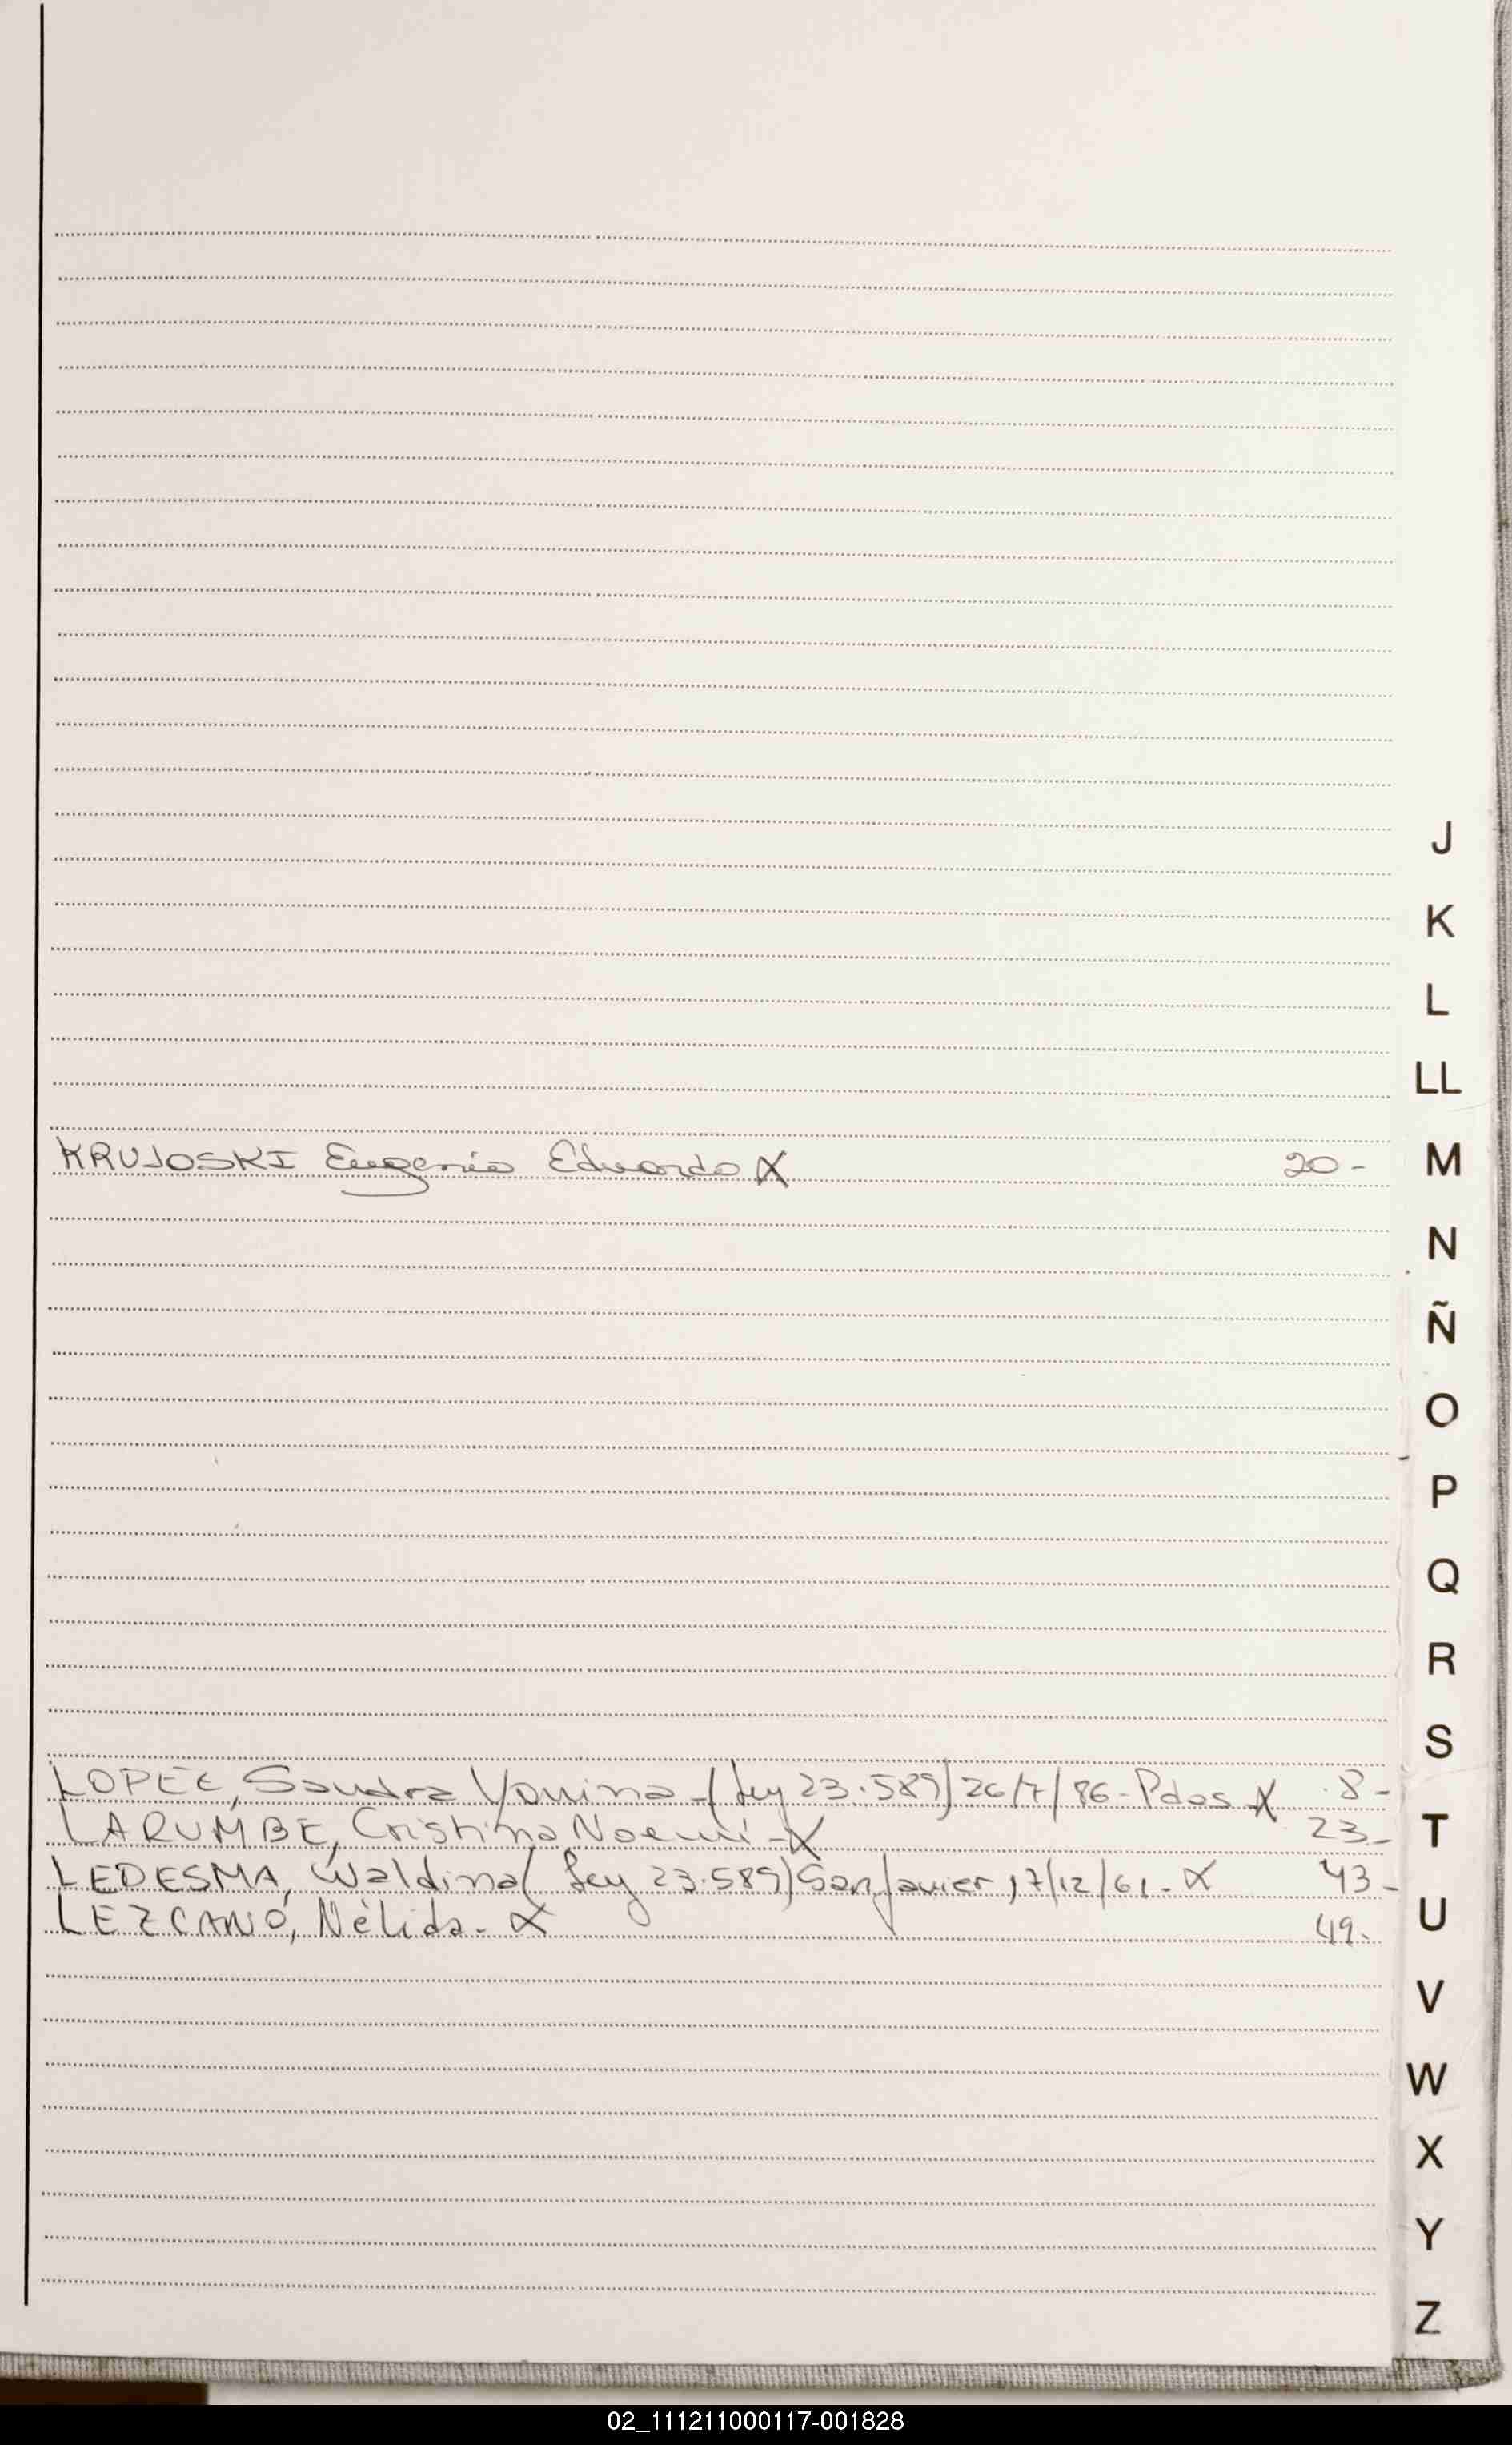 J
K
L
LL
KRUJOSKI Eugenio Eduardo X 20-
M
N
Ñ
O
P
Q
R
S
LOPEZ, Sandra Vanina-(Ley 23.589) 26/7/86-Pdas X 8-
LARUMBE, Cristina Noemí-X 23-
T
LEDESMA, Waldina (Ley 23.589) San Javier, 17/12/61-X 43-
LEZCANO, Nélida-X 49-
U
V
W
X
Y
Z
02_111211000117-001828